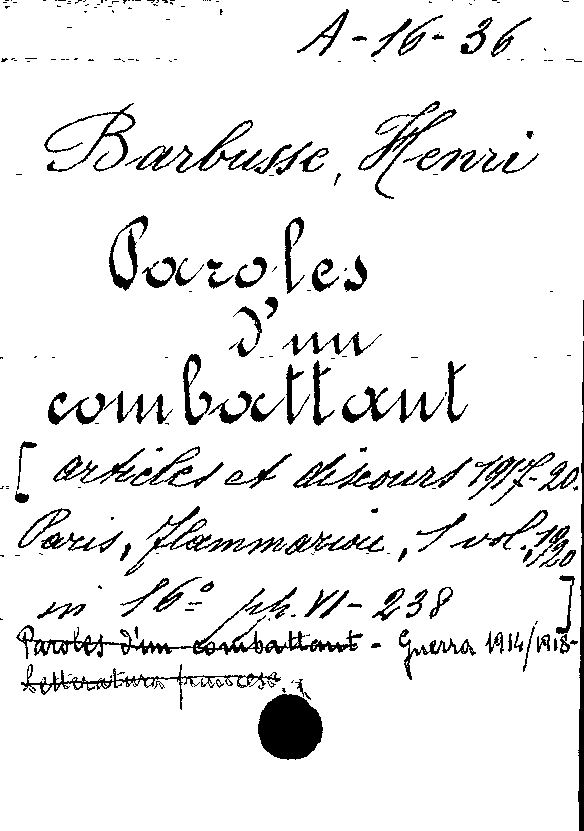 A-16-36
Barbusse, Henri
Paroles
d'un
combattant
[articles et discours 1917-20.
Paris, Flammarion, 1 vol. 1920
in 16° pp. VI-238]
Paroles d'un combattant - Guerra 1914/1918-
Letteratura francese